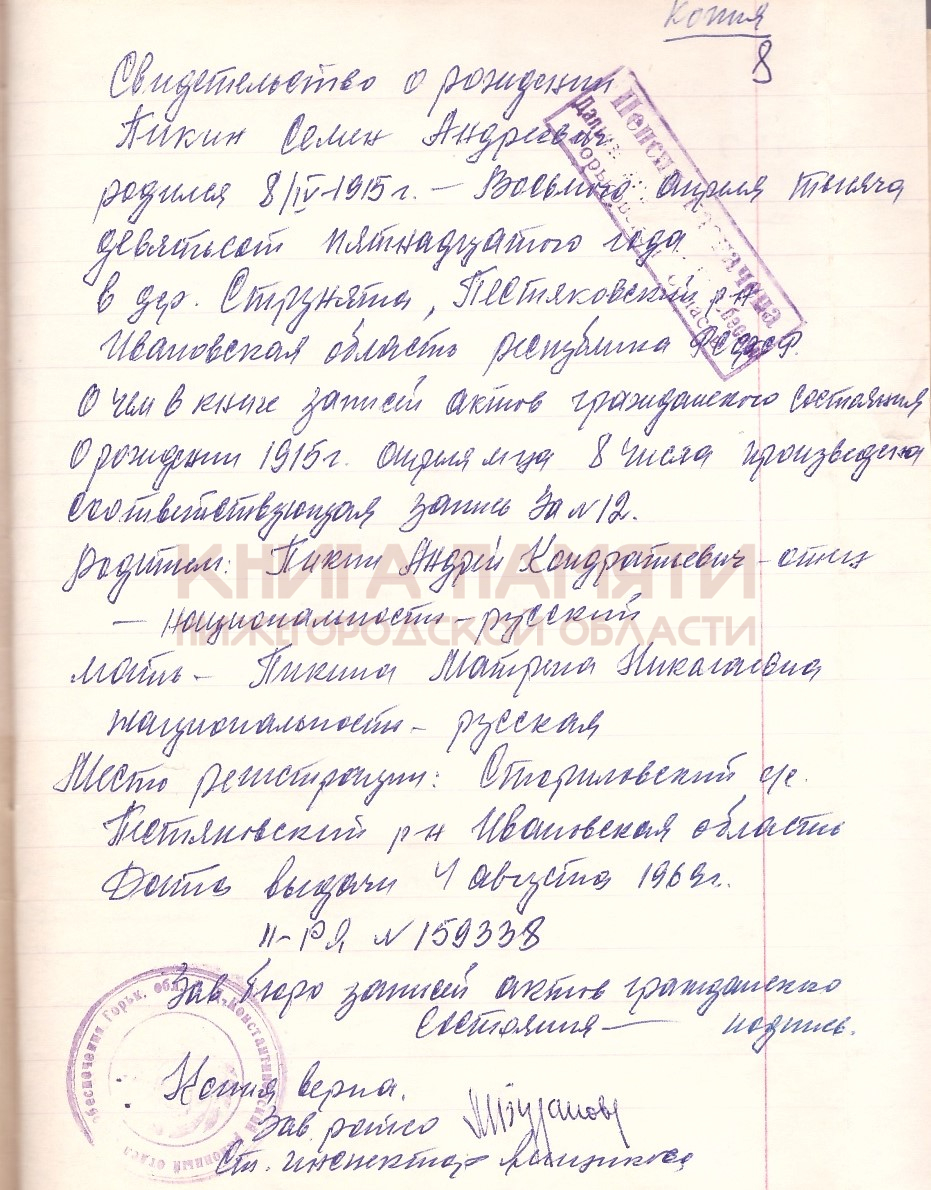 Копия
8
Свидетельство о рождении
Пикин Семен Андреевич
родился 8/IV-1915 г. – Восьмого апреля тысяча
девятьсот пятнадцатого года
в дер. Струнята, Пестяковский р-н
Ивановская область республика РСФСР.
О чем в книге записей актов гражданского состояния
о рождении 1915 г. апреля м-ца 8 числа произведена
соответствующая запись за № 12.
Родители: Пикин Андрей Кондратьевич – отец
– национальность – русский
мать – Пикина Матрена Николаевна
национальность – русская
Место регистрации: с/с.
Пестяковский р-н Ивановская область
Дата выдачи 4 августа 1969 г.
II-РЯ № 159338
Зав. бюро записей актов гражданско
состояния — подпись.
Копия верна.
Зав. райсо
Ст. инспектор
КНИГА ПАМЯТИ
НИЖЕГОРОДСКОЙ ОБЛАСТИ